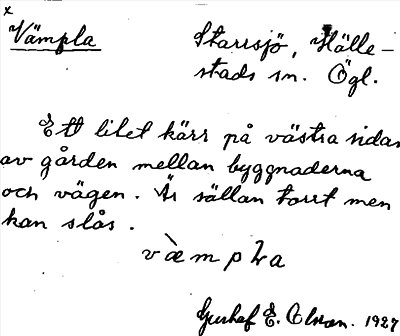 x
Vämpla
Starrsjö, Hälle-
stads sn. Ögl.
Ett litet kärr på västra sidan
av gården mellan byggnaderna
och vägen. Är sällan torrt men
kan slås.
Gustaf E. Olson. 1927